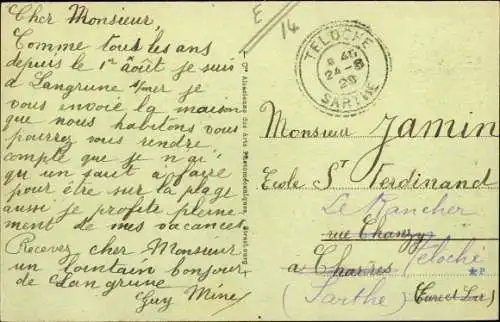 Cher Monsieur,
Comme tous les ans
depuis le 1er août je suis
à Langrune s/mer je
vous envoie la maison
que nous habitons vous
pourrez vous rendre
compte que je n'ai
qu'un saut à faire
pour être sur la plage
aussi je profite pleine
ment de mes vacances
Recevez cher Monsieur
un lointain bonjour
de Langrune
Guy Mine
E
14
Cie Alsacienne des Arts Photomécaniques, Strasbourg
TELOCHÉ
24-8
29
SARTHE
Monsieur Jamin
Ecole St Ferdinand
Le Rancher
rue Chanzy
à Chartres Teloché
(Sarthe) (Eure et Loir)
*P